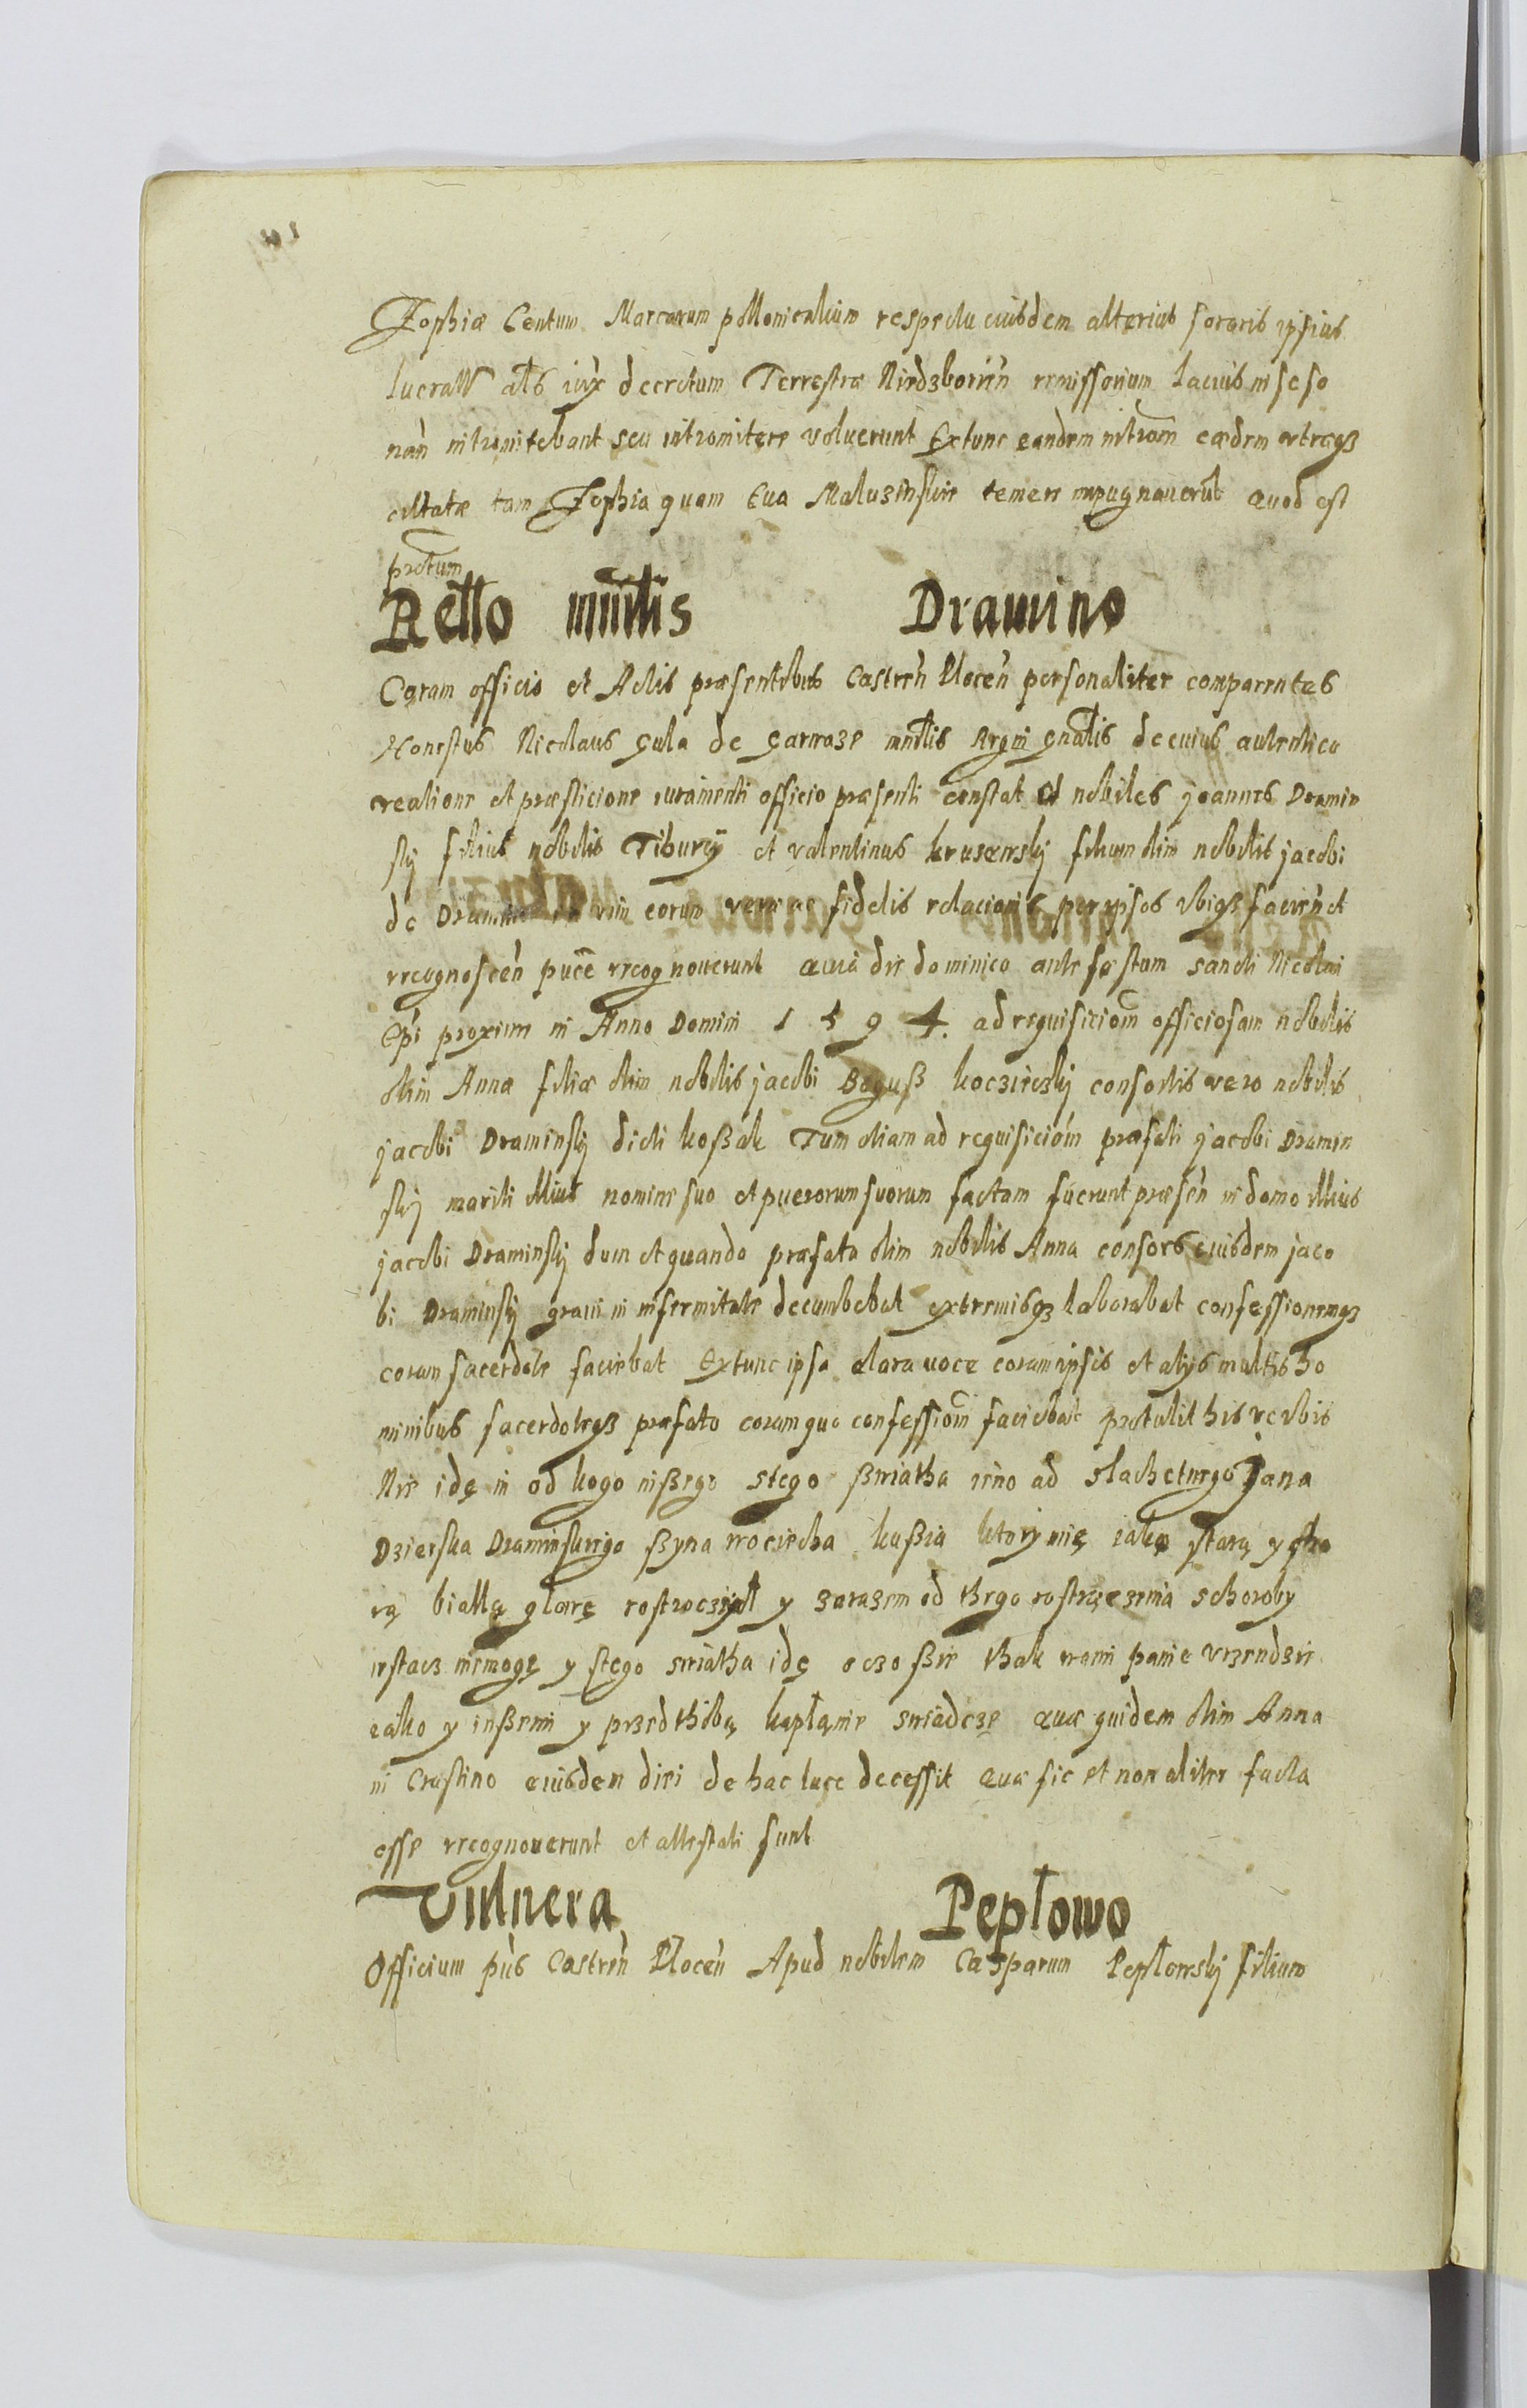 Zophiæ Centum Marcarum pollonicalium respectu eiusdem alterius sororis ipsius
lucratt als iux decretum Terrestræ Niedzborien remissorium
nan intromitebant seu intromitere voluerunt Extunc eandem introm eædem vtræqз
citatæ tam Zophia quam Eua temere impugnauerut quod est
prætum
Rello mnrlis Dramino
Coram officio et Actis præsentibus Castren Plocen personaliter comparentes
Honestus Nicolaus Gula de mnrlis Regni gnalis de cuius autentica
creatione et præsticione iuramenti officio præsenti constat et nobiles joannes Dramin
skj filius nobilis Tiburcÿ et valentinus krusewskj filium olim nobilis jacobi
de Dramino in vim eorum veræ ac fidelis relacionis per ipsos vbiqз facien et
recognoscen pucæ recognouerunt quia die dominico ante festum sancti Nicolai
Epi proximo in Anno Domini 1594. ad requisiciom officiosam nobilis
olim Annæ filiæ olim nobilis jacobi Boguß koczieskj consortis vero nobilis
jacobi Draminskj dicti koßak Tum etiam ad requisiciom præfati jacobi Dramin
skj mariti illius nomine suo et puerorum suorum factam fuerunt præsen in domo illius
jacobi Draminskj dum et quando præfata olim nobilis Anna consors eiusdem jaco
bi Draminskj graui in infirmitate decumbebat extremisqз laborabat confessionemqз
coram sacerdote faciebat Extunc ipsa clara voce coram ipsis et alijs multis ho
minibus sacerdoteqз præfato coram quo confessiom faciebat protulit his verbis
Nie idę ni od kogo inßego stego ßwiatha ieno ad slachetnego Jana
Dzierska Draminskiego ßyna woiciecha kußia ktory mię iako starą y cho
rą biallą glowę rostroczył y zarazem od thego rostroczenia schoroby
wstacz niemogę y stego swiatha idę oczo ßie thak wami panie vrzendzie
iako y inßemi y przed thobą kapłanie swiadczę quæ quidem olim Anna
in Crastino eiusdem diei de hac luce decessit quæ sic et non aliter facta
esse recognouerunt et attestati sunt
Vulnera Pepłowo
Officium pns Castren Plocen Apud nobilem Casparum Pepłowskj filium